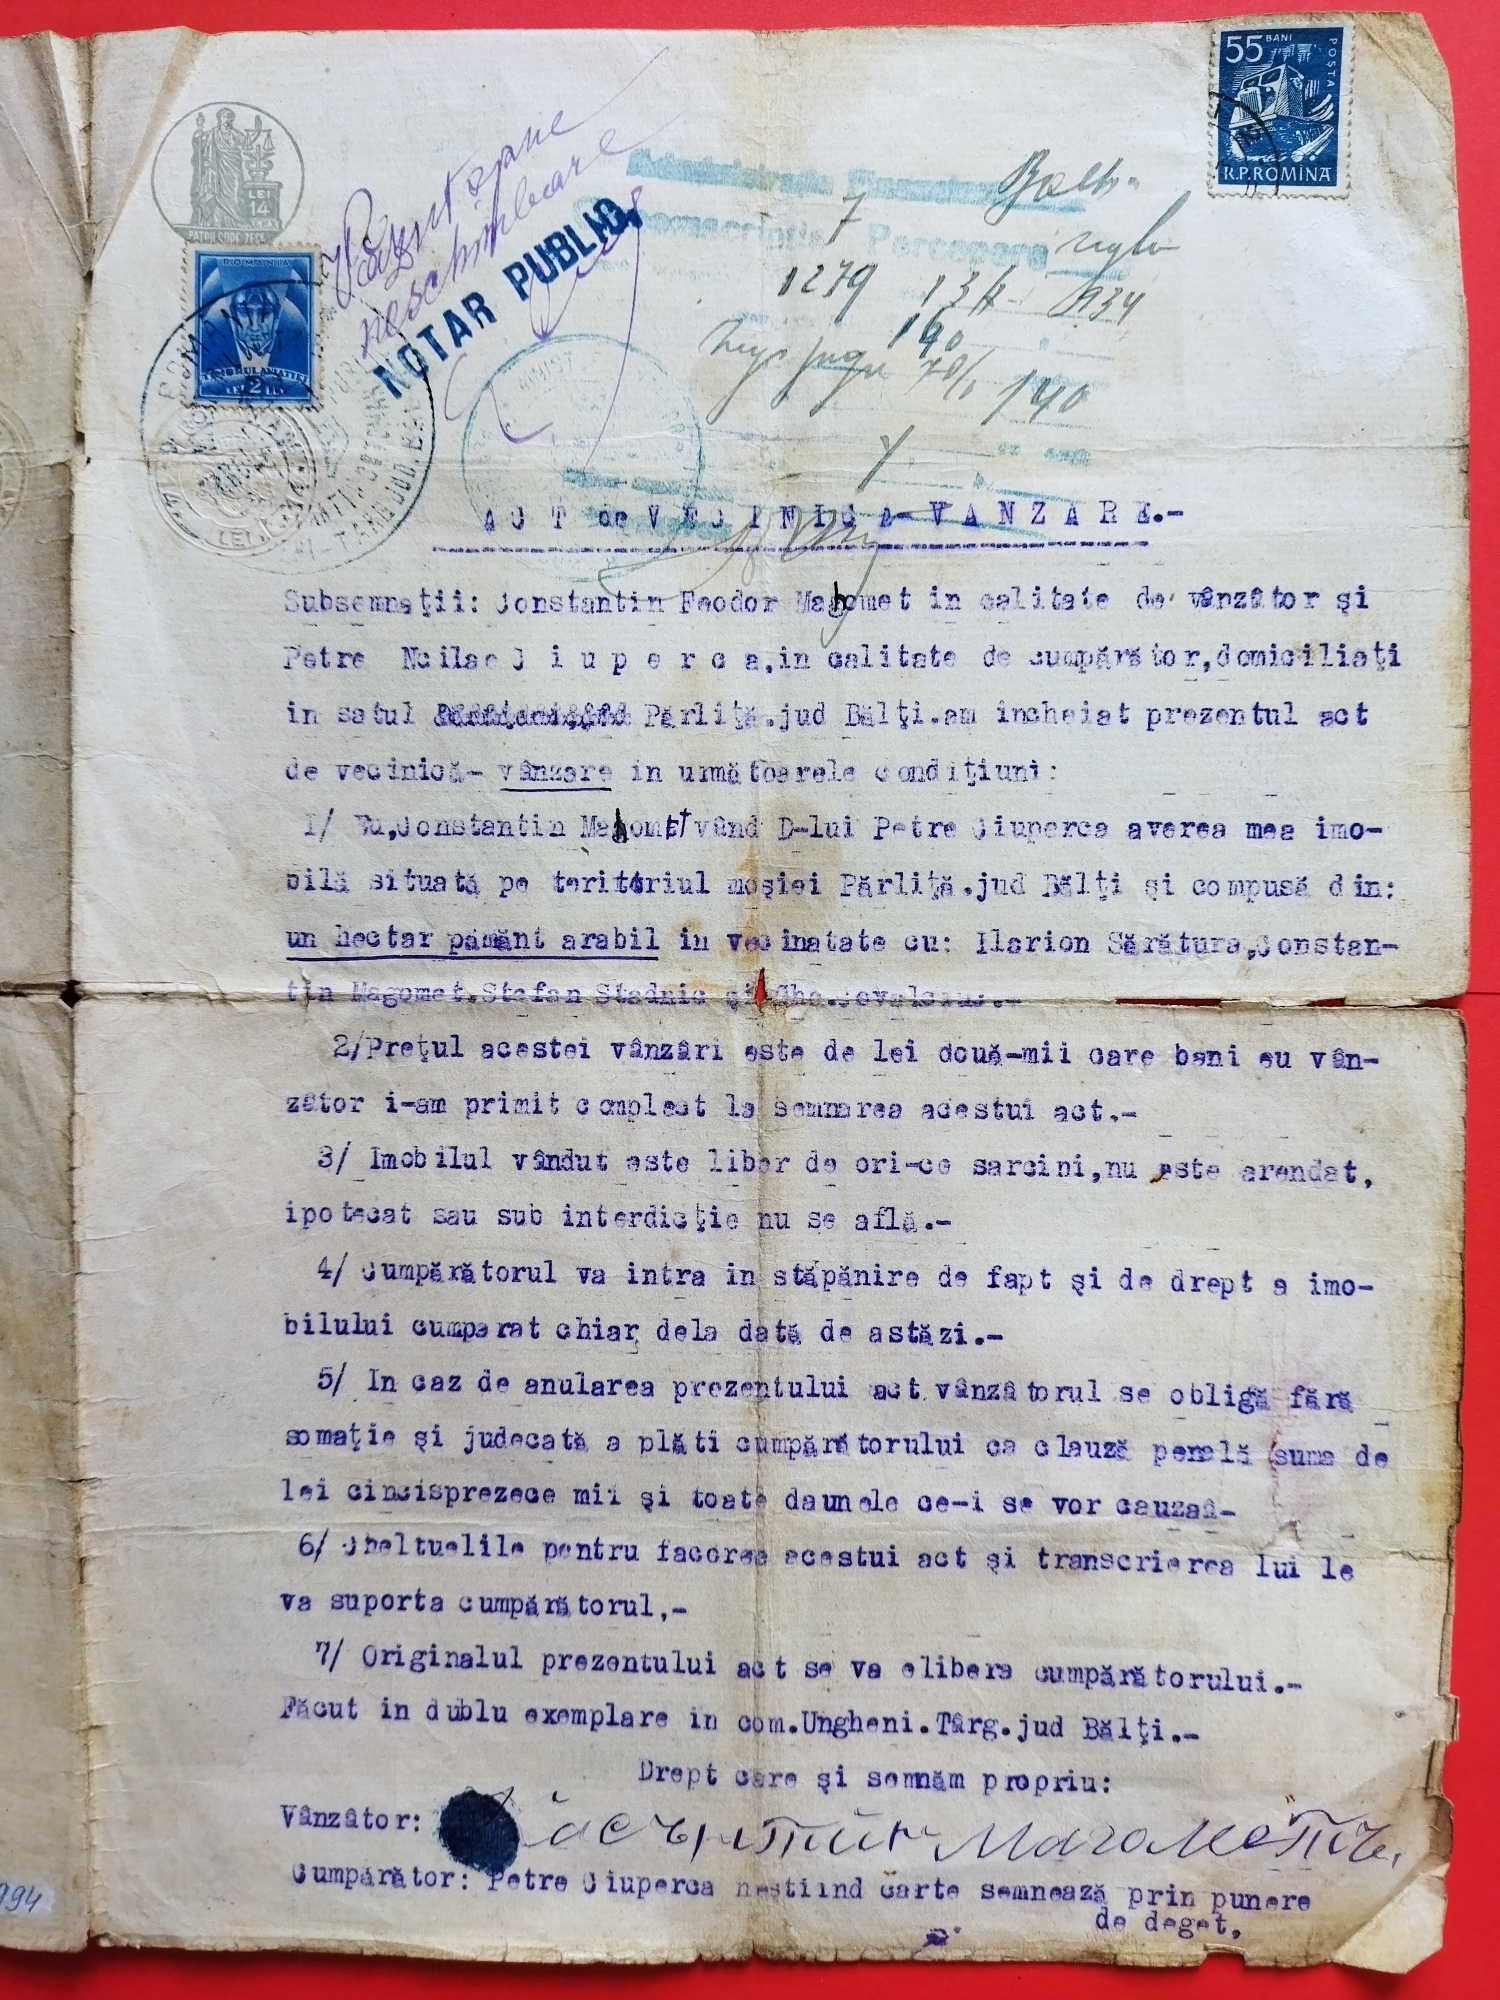 55 BANI
POȘTA
R.P.ROMINA
LEI
14
ROMANIA
LEI 2 LEI
neschimbare
NOTAR PUBLIC,
7
1279 13 934
140
140
ACT de VECINICA-VANZARE.-
Subsemnaţii: Constantin Feodor Mahomet in calitate de vânzător şi
Petre Ncilae C i u p e r c a,in calitate de cumpărător,domiciliaţi
in satul Pârliţă.jud Bălţi.am incheiat prezentul act
de vecinică- vânzare in următoarele condiţiuni:
1/ Eu,Constantin Mahomet vând D-lui Petre Ciuperca averea mea imo-
bilă situată pe teritoriul moşiei Părliţă.jud Bălţi şi compusă din:
un hectar pământ arabil in vecinatate cu: Ilarion Sărătura,Constan-
tin Magomet.Stefan Stadnic şi
2/Preţul acestei vânzări este de lei două-mii care bani eu vân-
zător i-am primit compleat la semnarea acestui act.-
3/ Imobilul vândut este liber de ori-ce sarcini,nu este arendat,
ipotecat sau sub interdicţie nu se află.-
4/ Cumpărătorul va intra in stăpănire de fapt şi de drept a imo-
bilului cumparat chiar dela dată de astăzi.-
5/ In caz de anularea prezentului act vânzătorul se obligă fără
somaţie şi judecată a plăti cumpărătorului ca clauză penală suma de
lei cincisprezece mii şi toate daunele ce-i se vor cauza-
6/ Cheltuelile pentru facerea acestui act şi transcrierea lui le
va suporta cumpărătorul,-
7/ Originalul prezentului act se va elibera cumpărătorului.-
Făcut in dublu exemplare in com.Ungheni.Târg.jud Bălţi.-
Drept care şi semnăm propriu:
Vânzător:
Cumpărător: Petre Ciuperca neştiind carte semnează prin punere
de deget,
994